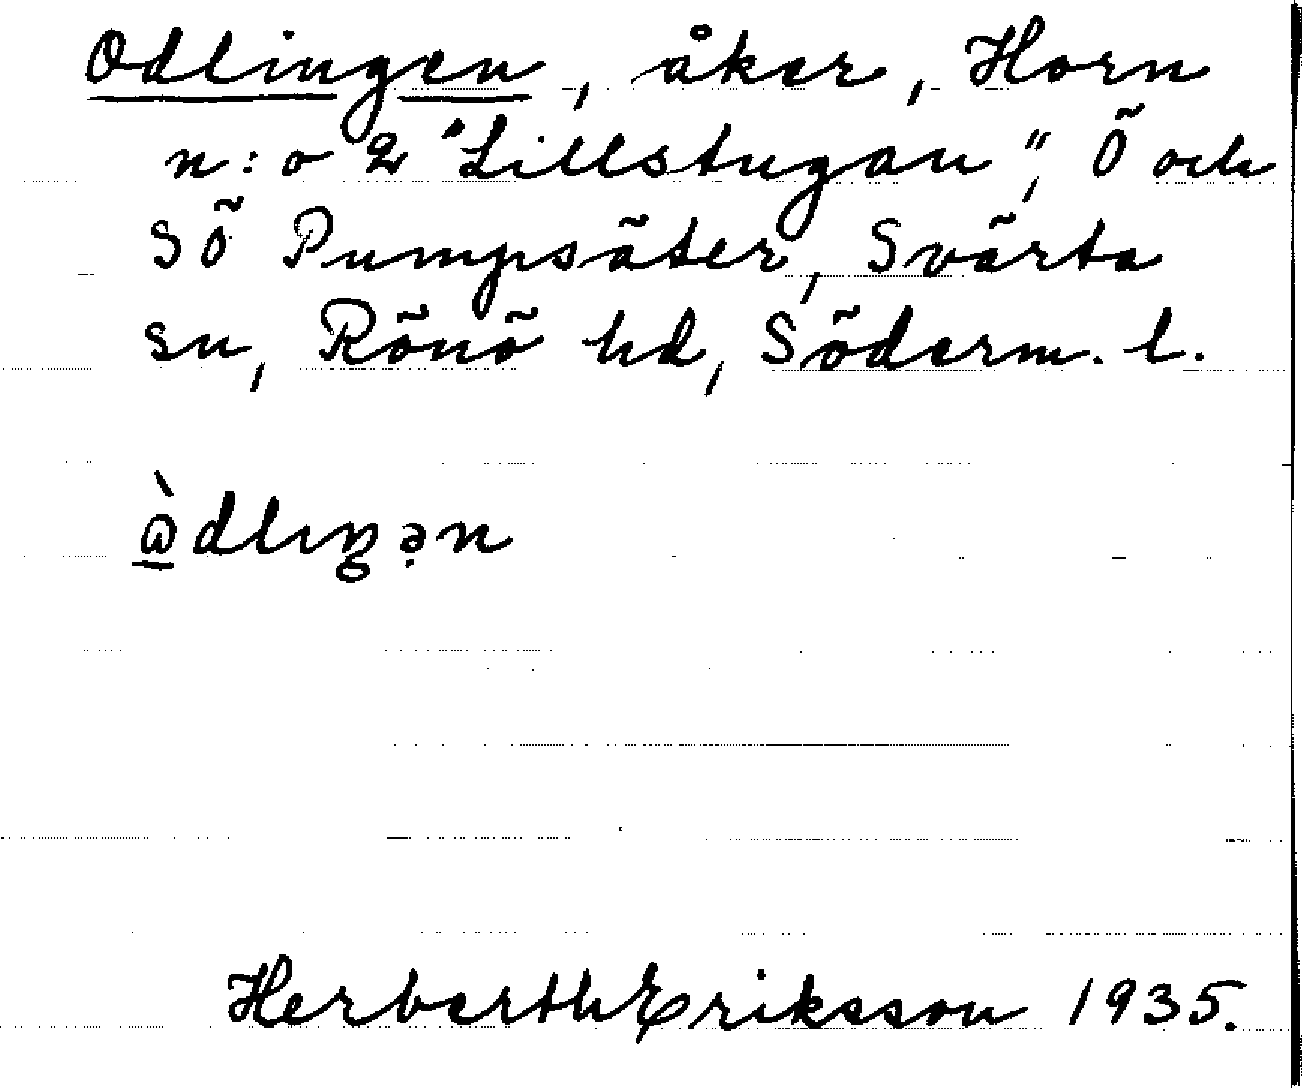 Odlingen, åker, Horn
n:o 2 "Lillstugan", Ö och
SÖ Pumpsäter, Svärta
sn, Rönö hd, Söderm. l.
Herberth Eriksson 1935.